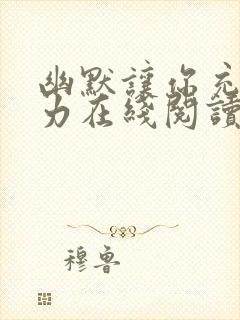 幽默讓你充
力在綫閱讀
穆魯